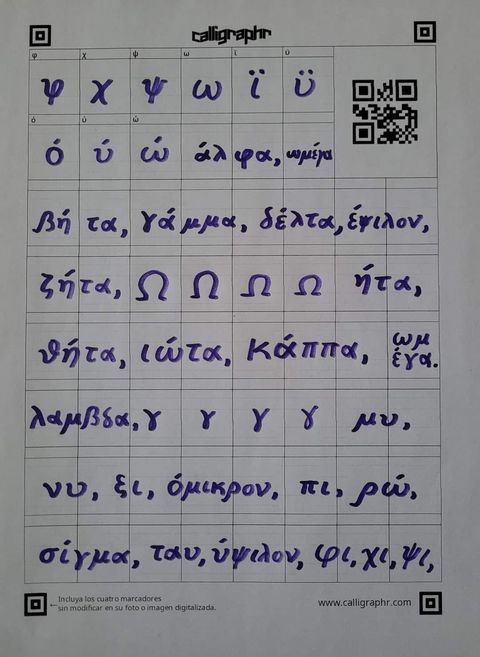 calligraphr
φ χ ψ ω ϊ ϋ
φ χ ψ ω ϊ ϋ
ό ύ ώ
ό ύ ώ άλφα, ωμέγα
βήτα, γάμμα, δέλτα, έψιλον,
ζήτα, Ω Ω Ω Ω ήτα,
θήτα, ιώτα, κάππα, ωμέγα.
λαμβδα, γ γ γ γ μυ,
νυ, ξι, όμικρον, πι, ρώ,
σίγμα, ταυ, ύψιλον, φι, χι, ψι,
← Incluya los cuatro marcadores
sin modificar en su foto o imagen digitalizada.
www.calligraphr.com